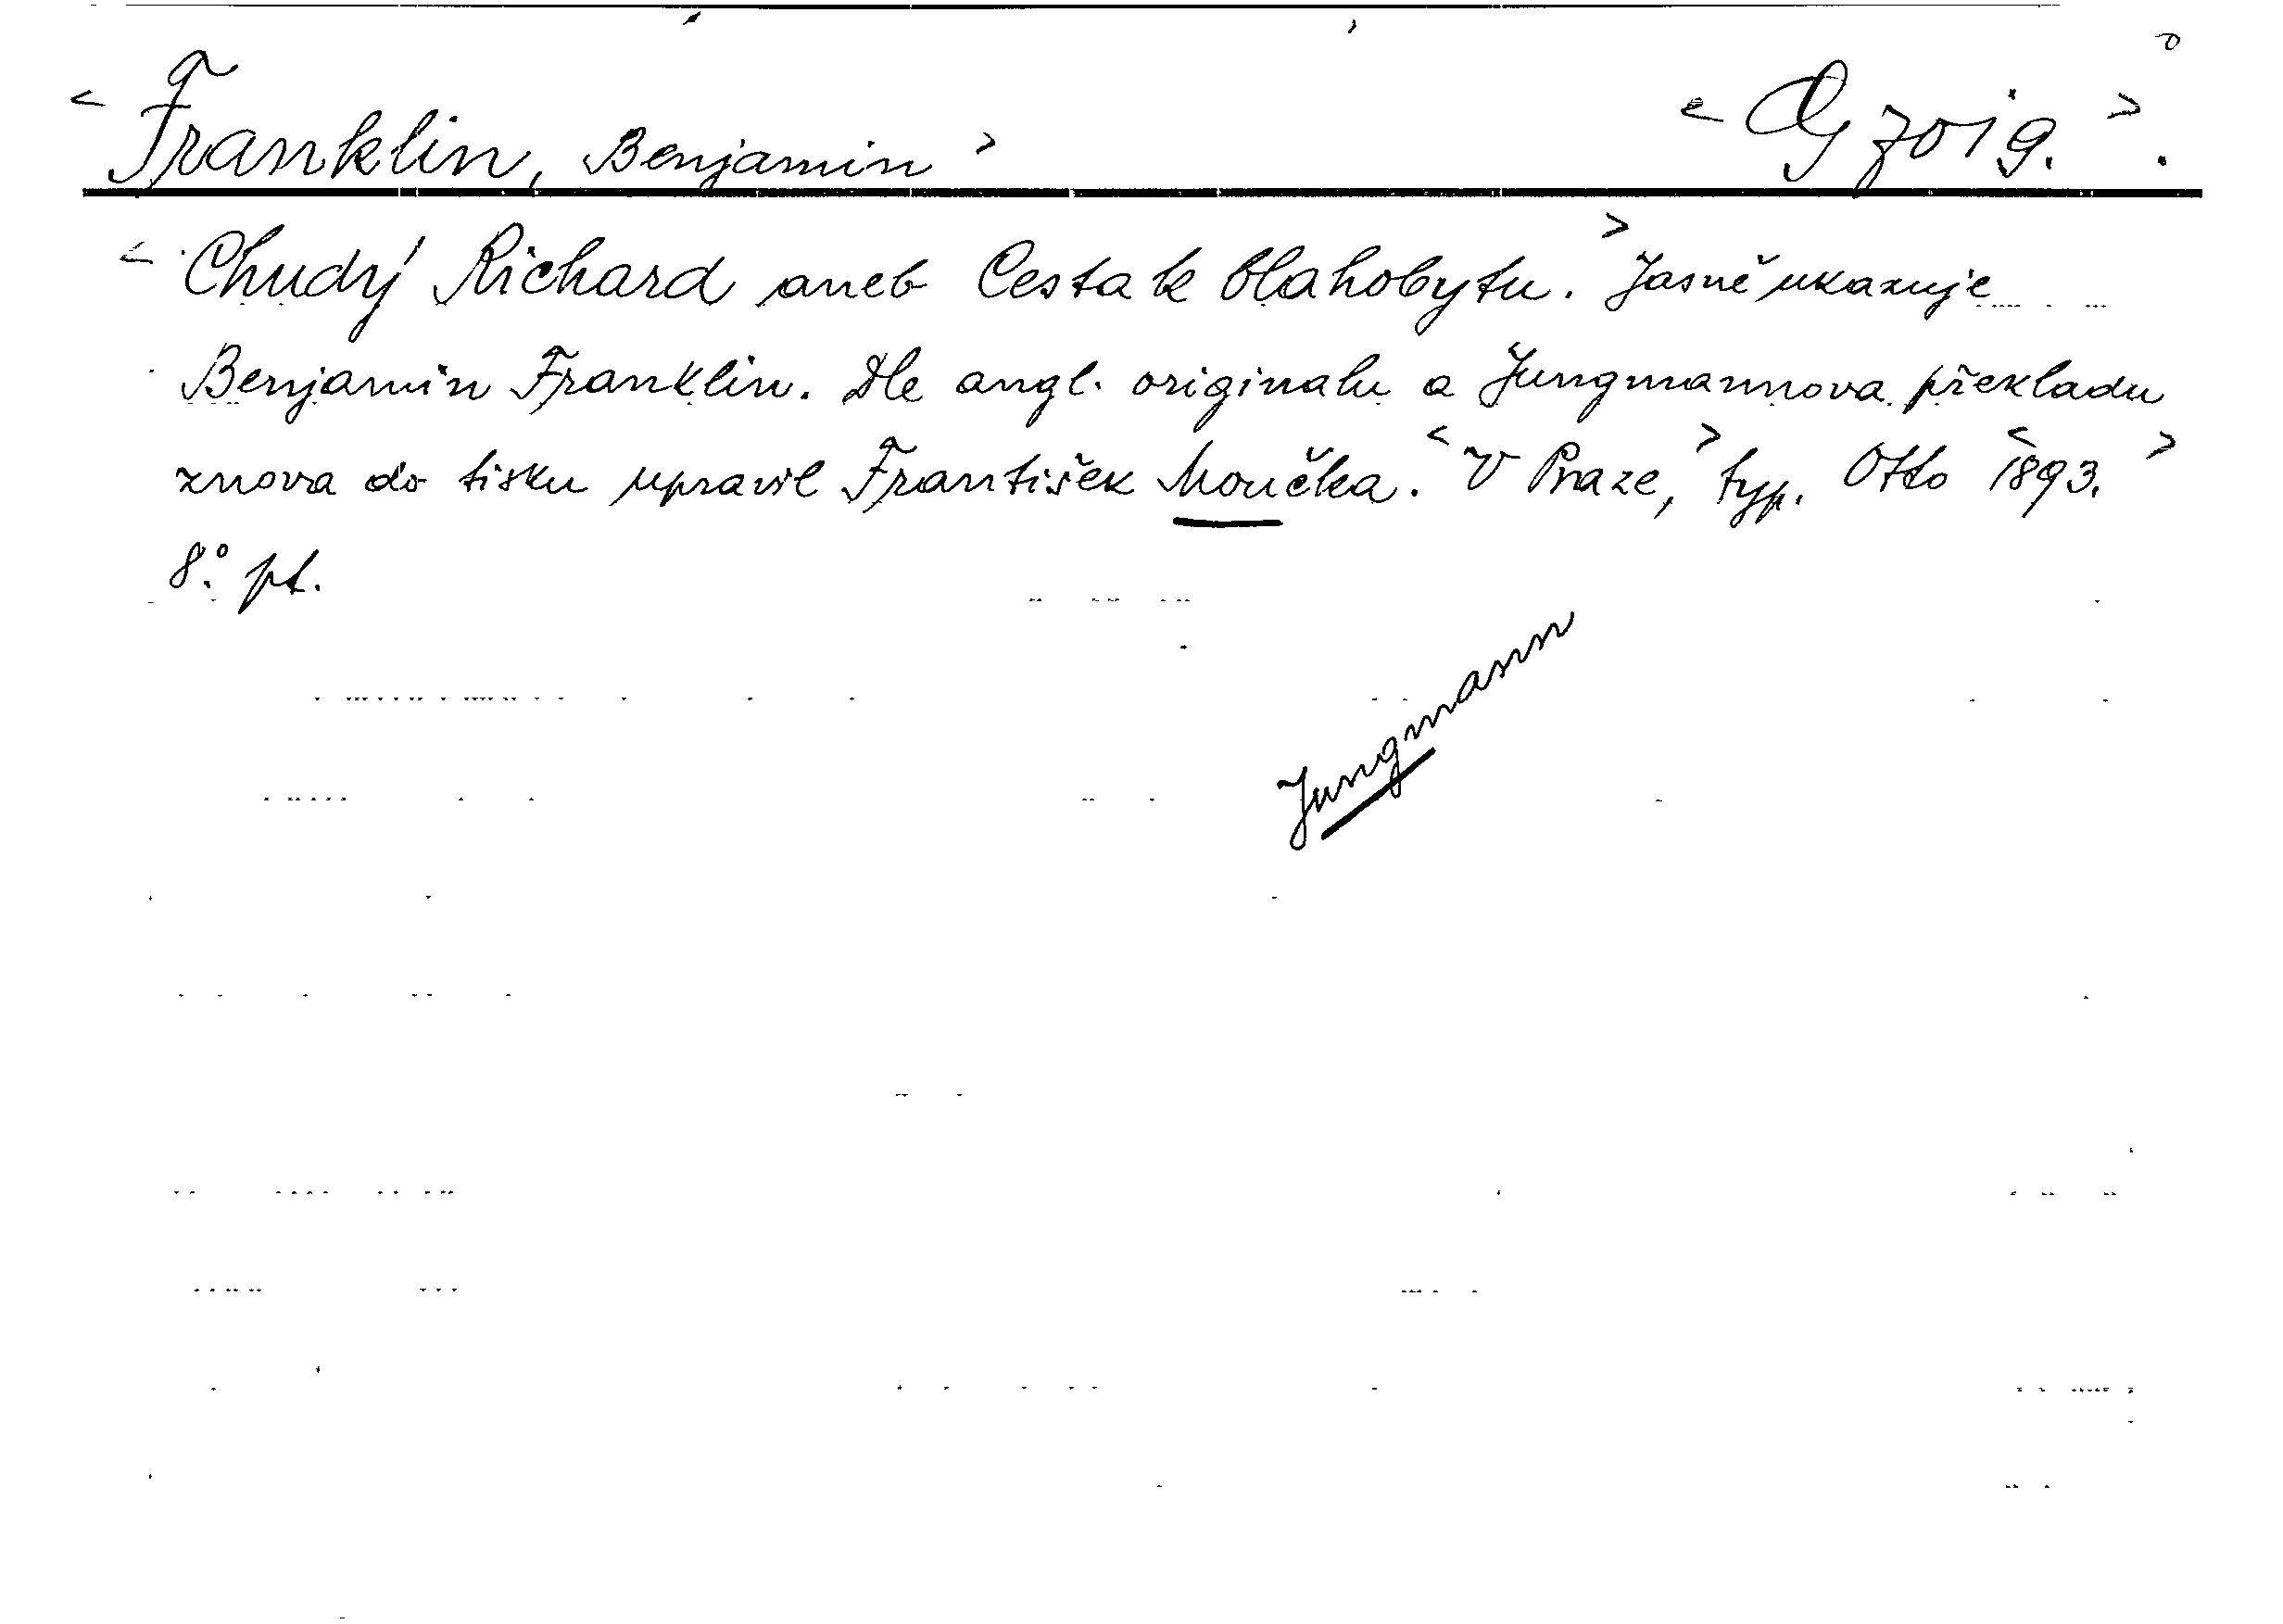 < Franklin, Benjamin > < G 7019. > .
< Chudý Richard aneb Cesta k blahobytu. > Jasně ukazuje
Benjamin Franklin. Dle angl. originalu a Jungmannova překladu
znova do tisku upravil František Moučka. < V Praze, > typ. Otto < 1893. >
8.° pt.
Jungmann